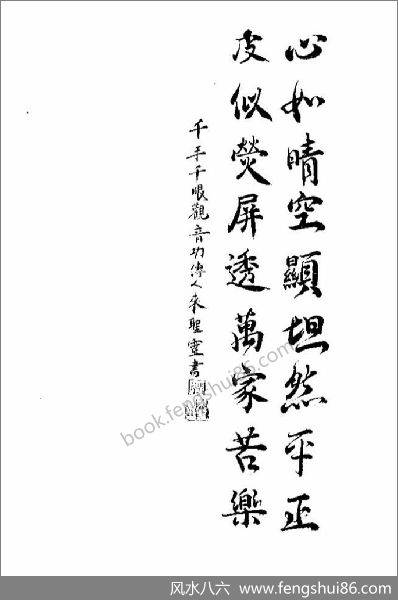 心如晴空顯坦然平正
皮似熒屏透萬家苦樂
千手千眼觀音功傳人來聖靈書
book.fengshui86.com
风水八六 www.fengshui86.com